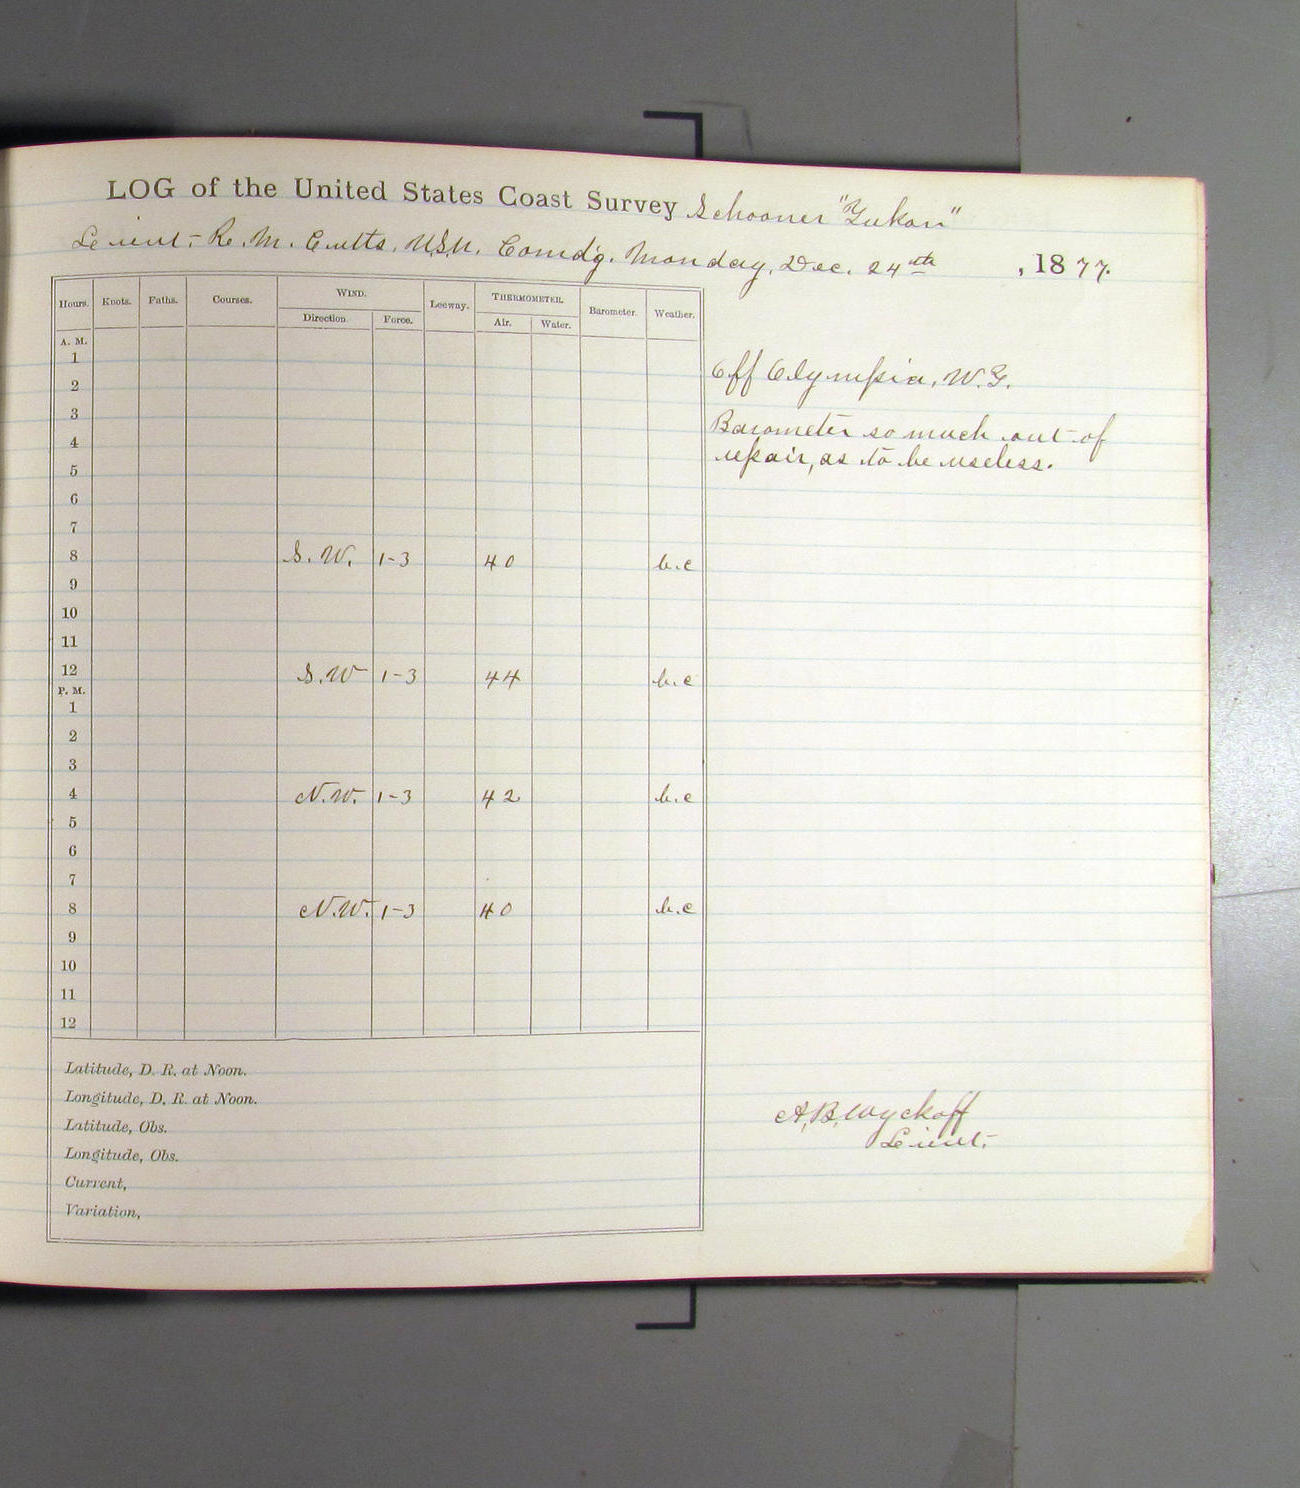 LOG of the United States Coast Survey Schooner "Yukon"
Lieut. R. M. Cutts, U.S.N. Comdg. Monday, Dec. 24th, 1877.
Hours. Knots. Faths. Courses. WIND. Leeway. THERMOMETER. Barometer. Weather.
Direction. Force. Air. Water.
A. M.
1
2
3
4
5
6
7
8 S. W. 1-3 40 b.c
9
10
11
12 S.W 1-3 44 b.c
P. M.
1
2
3
4 N.W. 1-3 42 b.c
5
6
7
8 N.W. 1-3 40 b.c
9
10
11
12
Latitude, D. R. at Noon.
Longitude, D. R. at Noon.
Latitude, Obs.
Longitude, Obs.
Current,
Variation,
Off Olympia, W.T.
Barometer so much out of
repair, as to be useless.
A.B. Wyckoff
Lieut.